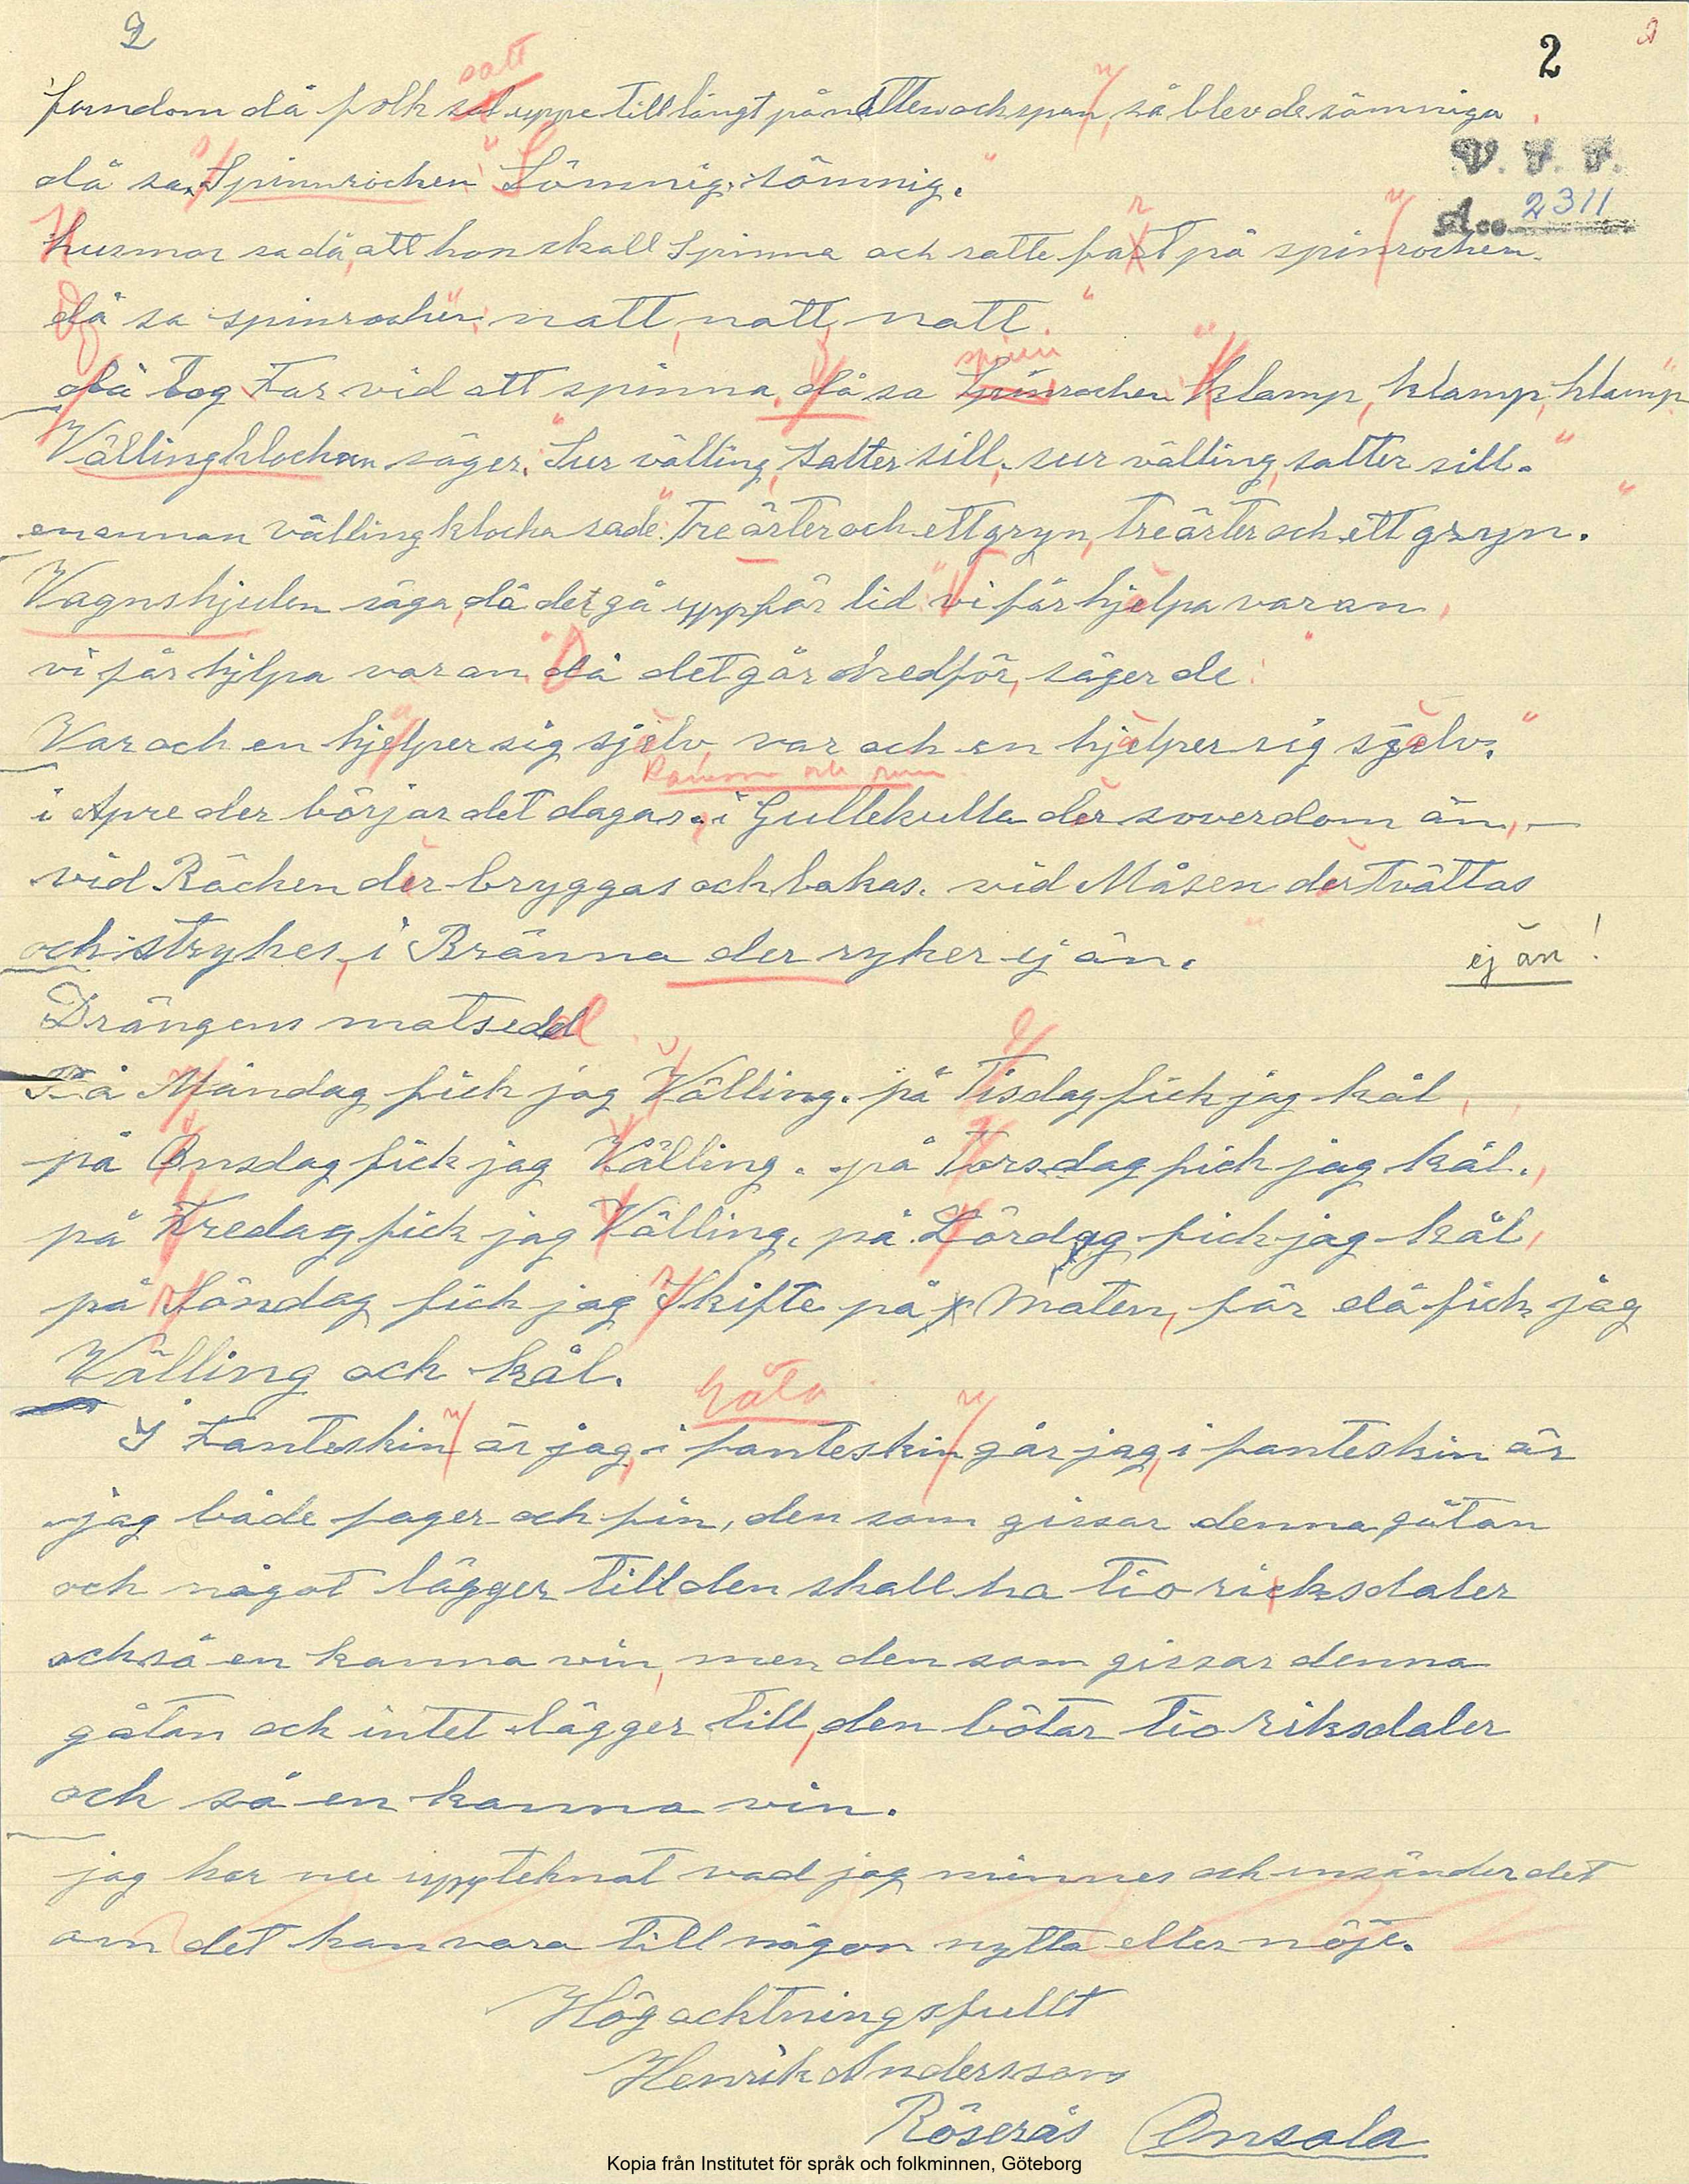 2
2
2
satt
forndom då folk sat uppe till långt på natten och span, så blev de sömniga
V. F. F.
då sa Spinnrocken Sömnig, sömnig.
Acc 2311
husmor sa då, att hon skall Spinna och satte fart på spinrocken.
då sa spinrocken: natt, natt, natt.
spinn
då tog Far vid att spinna. då sa Spinrocken klamp, klamp, klamp
Vällingklockan säger. Sur välling, salter sill. sur välling, salter sill.
en annan vällingklocka sade: Tre ärter och ett gryn, tre ärter och ett gryn.
Vagnshjulen säga, då det gå uppför lid vi får hjelpa varan,
vi får hjelpa varan. då det går nedför, säger de:
Var och en hjelper sig sjelv, var och en hjelper sig sjelv.
Ramsa och rim
i Apre der börjar det dagas, i Gullekulla der sover dom än, —
vid Räcken der bryggas och bakas. vid Måsen der Tvättas
och strykes, i Bränna der ryker ej än.
ej än!
Drängens matsedel
På Måndag fick jag Välling. på Tisdag fick jag kål,
på Onsdag fick jag Välling. på Torsdag fick jag kål.,
på Fredag fick jag Välling, på Lördag fick jag kål,
på Söndag fick jag Skifte på Maten, för då fick jag
Välling och kål.
Gåta
I Fanteskin är jag, i fanteskin går jag, i fanteskin är
jag både fager och fin, den som gissar denna gåtan
och något lägger till den skall ha tio ricksdaler
och så en kanna vin, men den som gissar denna
gåtan och intet lägger till, den bötar tio riksdaler
och så en kanna vin.
jag har nu uppteknat vad jag minnes och insänder det
om det kan vara till någon nytta eller nöje.
Högacktningsfullt
Henrik Andersson
Röserås Onsala
Kopia från Institutet för språk och folkminnen, Göteborg